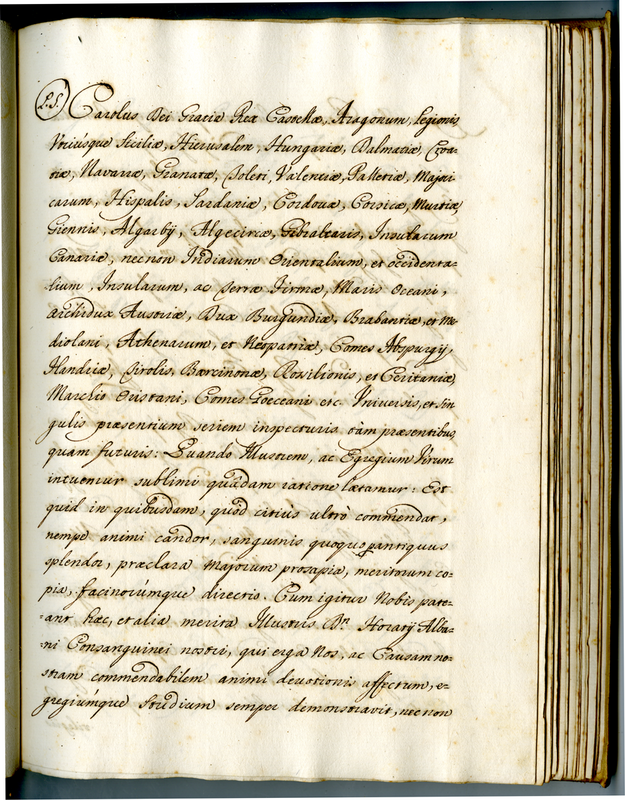 L.S. Carolus Dei Gracia Rex Castellæ, Aragonum, Legionis
Vtriusque Siciliæ, Hierusalem, Hungariæ, Dalmatiæ, Croa-
tiæ, Navarræ, Granatæ, Toleti, Valentiæ, Galletiæ, Majori
carum, Hispalis, Sardaniæ, Cordouæ, Corsicæ, Murtiæ,
Giennis, Algarbÿ, Algeciræ, Gibraltaris, Insularum
Canariæ, necnon Indiarum Orientalium, et occidenta-
lium, Insularum, ac Terræ Firmæ, Maris Oceani,
Archidux Austriæ, Dux Burgundiæ, Brabantiæ, et Me
diolani, Athenarum, et Neopatriæ, Comes Abspurgÿ,
Flandriæ, Tirolis, Barcinonæ, Rossilionis, et Ceritaniæ,
Marchio Oristani, Comes Goeceani etc. Vniversis, et sin
gulis præsentium seriem inspecturis tàm præsentibus
quam futuris: Quando Illustrem, ac Egregium Virum
intuemur sublimi quâdam ratione lætamur: Est
quid in quibusdam, quòd citiùs ultrò commendat,
nempe animi candor, sanguinis quoque antiquus
splendor, præclara Majorum prosapia, meritorum co-
pia, facinorúmque directio. Cum igitur Nobis pate-
ant hæc, et alia merita Illustris Dn. Horatÿ Alba-
ni Consanguinei nostri, qui erga Nos, ac Causam no-
stram commendabilem animi devotionis affectum, e-
gregiúmque studium semper demonstravit, nec non